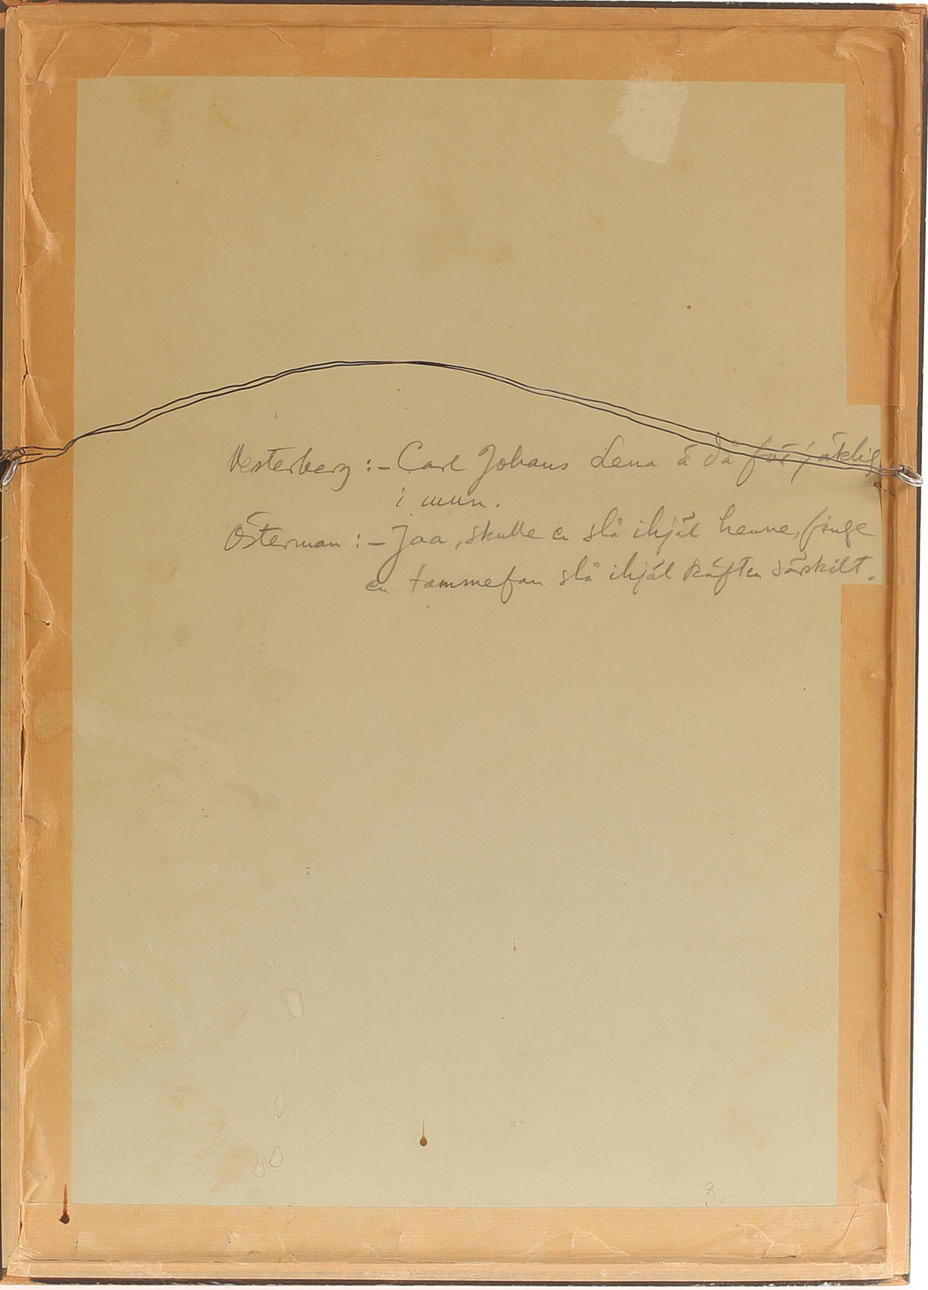 Vesterberg :- Carl Johans Lena ä då för jäklig
i mun.
Österman :- Jaa, skulle en slå ihjäl henne, finge
en tammefan slå ihjäl käften särskilt.